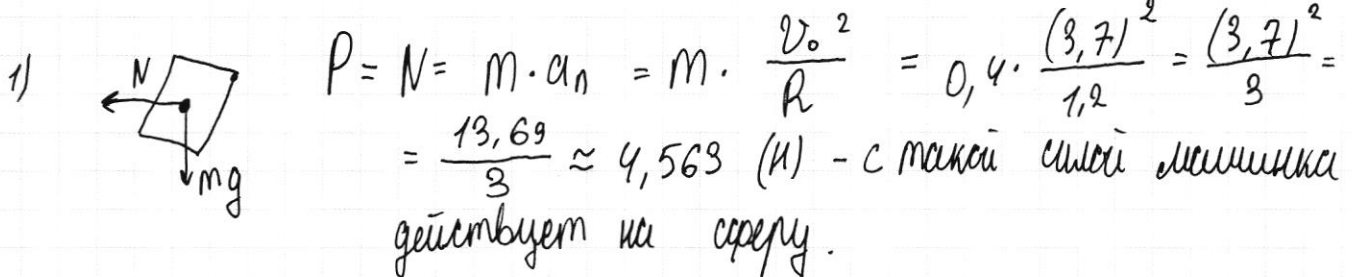 1) N mg P = N = m · aₙ = m · v₀²/R = 0,4 · (3,7)²/1,2 = (3,7)²/3 =
= 13,69/3 ≈ 4,563 (Н) - с такой силой машинка
действует на сферу.